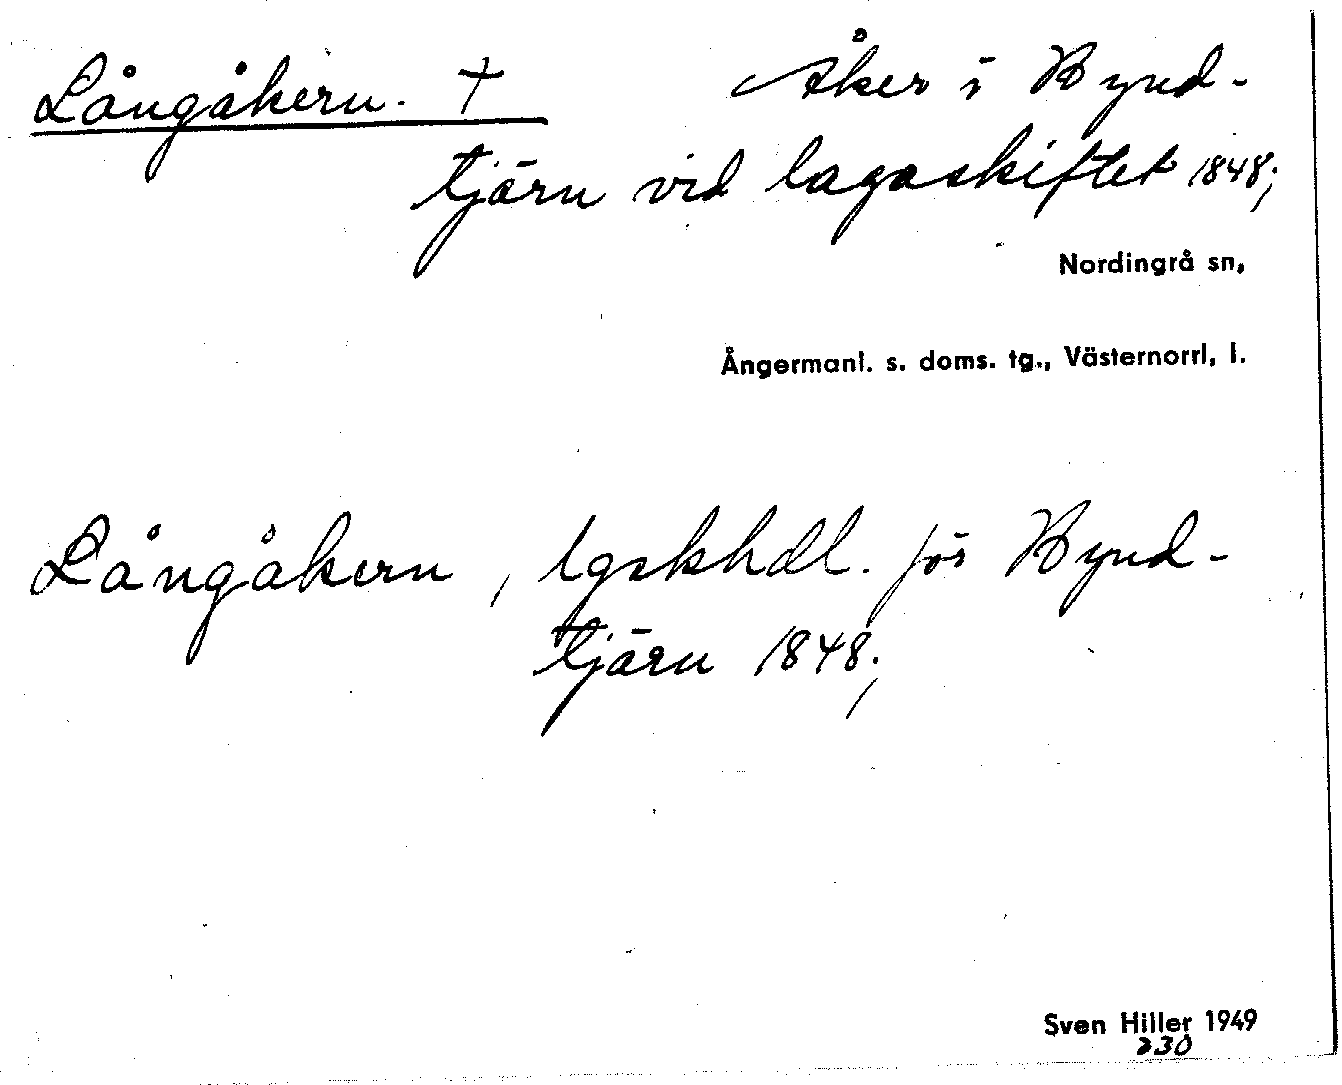 Långåkern. † Åker i Bynd-
tjärn vid lagaskiftet 1848;
Nordingrå sn,
Ångermanl. s. doms. tg., Västernorrl, l.
Långåkern, lgskhdl. för Bynd-
tjärn 1848;
Sven Hiller 1949
230